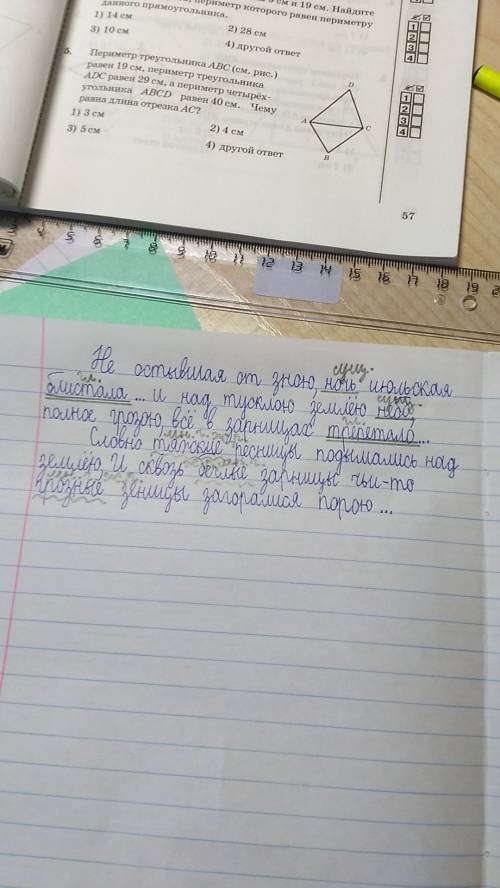 см и 19 см. Найдите
периметр которого равен периметру
данного прямоугольника.
1) 14 см
2) 28 см
3) 10 см
4) другой ответ
1
2
3
4
5. Периметр треугольника ABC (см. рис.)
равен 19 см, периметр треугольника
ADC равен 29 см, а периметр четырёх-
угольника ABCD равен 40 см. Чему
равна длина отрезка AC?
1) 3 см
2) 4 см
3) 5 см
4) другой ответ
D
A
C
B
1
2
3
4
57
5 6 7 8 9 10 11 12 13 14 15 16 17 18 19
сущ.
Не остывшая от зною, ночь июльская
гл. сущ.
блистала... и над тусклою землёю небо,
гл.
полное грозою, всё в зарницах трепетало...
Словно тяжкие ресницы подымались над
землёю, И сквозь беглые зарницы чьи-то
грозные зеницы загоралися порою...